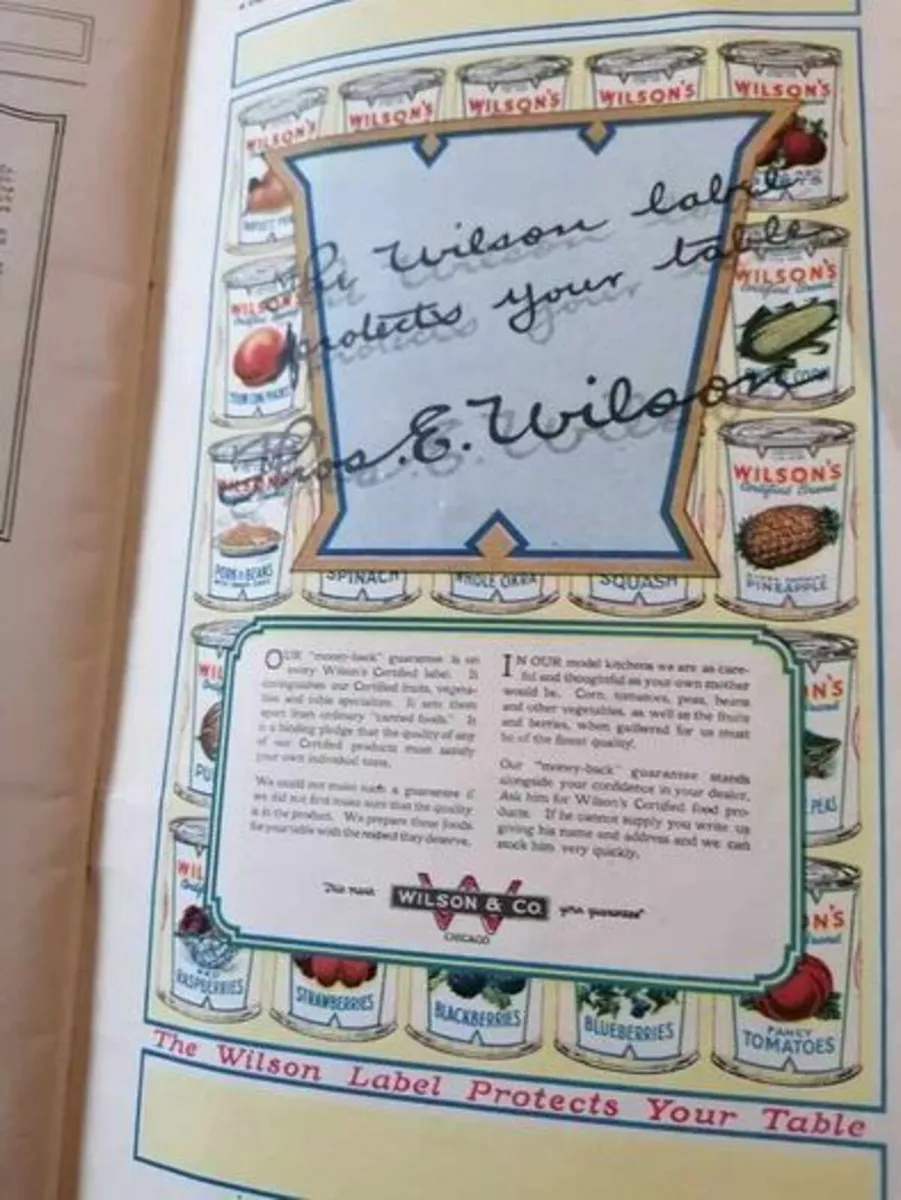 WILSON'S WILSON'S WILSON'S WILSON'S WILSON'S
The Wilson label
protects your table
Thos. E. Wilson
WILSON'S
Certified Brand
WILSON'S
Certified Brand
CORN
WILSON'S
PORK & BEANS
WILSON'S
Certified Brand
PINEAPPLE
SPINACH
WHOLE OKRA
SQUASH
OUR "money-back" guarantee is on
every Wilson's Certified label. It
distinguishes our Certified fruits, vegeta-
bles and table specialties. It sets them
apart from ordinary "canned foods." It
is a binding pledge that the quality of any
of our Certified products must satisfy
your own individual taste.
We could not make such a guarantee if
we did not first make sure that the quality
is in the product. We prepare these foods
for your table with the respect they deserve.
IN OUR model kitchens we are as care-
ful and thoughtful as your own mother
would be. Corn, tomatoes, peas, beans
and other vegetables, as well as the fruits
and berries, when gathered for us must
be of the finest quality.
Our "money-back" guarantee stands
alongside your confidence in your dealer.
Ask him for Wilson's Certified food pro-
ducts. If he cannot supply you write us
giving his name and address and we can
stock him very quickly.
"This mark WILSON & CO. your guarantee"
CHICAGO
WIL
PU
N'S
PEAS
WIL
RASPBERRIES
STRAWBERRIES
BLACKBERRIES
BLUEBERRIES
ON'S
Brand
FANCY
TOMATOES
The Wilson Label Protects Your Table